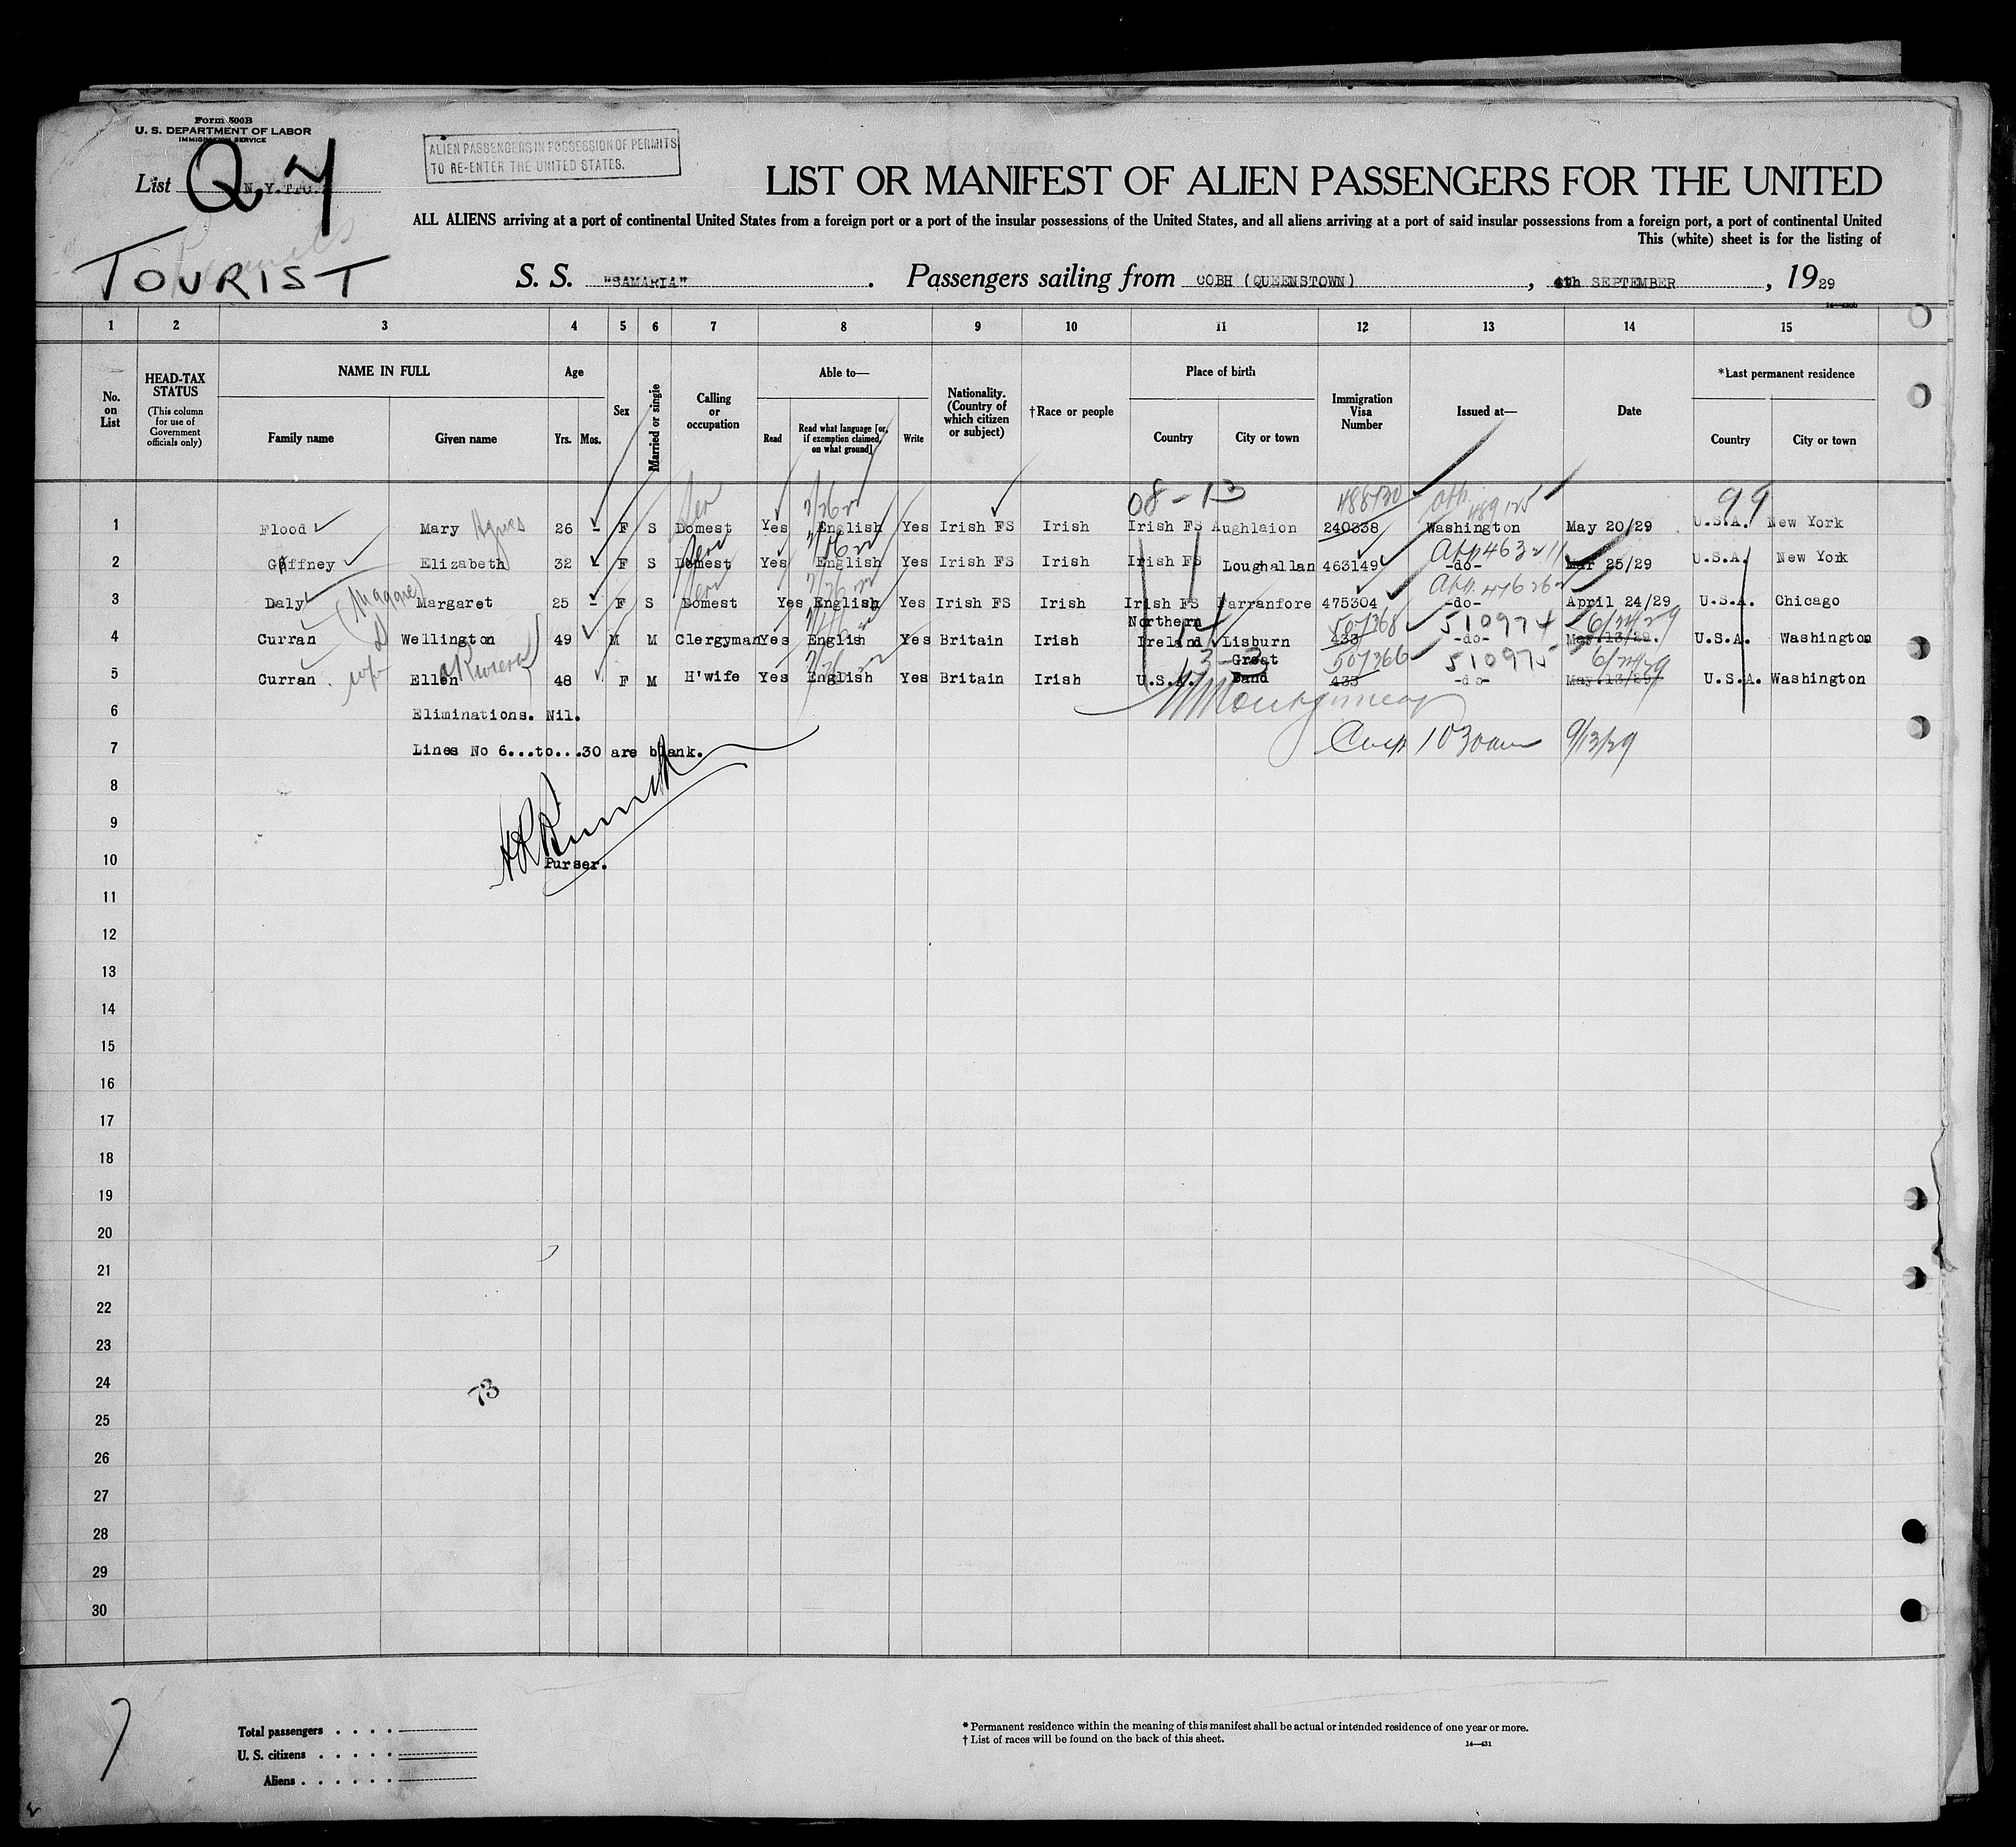 Form 500B
U. S. DEPARTMENT OF LABOR
IMMIGRATION SERVICE
ALIEN PASSENGERS IN POSSESSION OF PERMITS
TO RE-ENTER THE UNITED STATES.
List Q 4
TOURIST
LIST OR MANIFEST OF ALIEN PASSENGERS FOR THE UNITED
ALL ALIENS arriving at a port of continental United States from a foreign port or a port of the insular possessions of the United States, and all aliens arriving at a port of said insular possessions from a foreign port, a port of continental United
This (white) sheet is for the listing of
S. S. "SAMARIA" . Passengers sailing from COBH (QUEENSTOWN) , 4th SEPTEMBER , 1929
1 2 3 4 5 6 7 8 9 10 11 12 13 14 15
No. on List
HEAD-TAX STATUS (This column for use of Government officials only)
NAME IN FULL Family name Given name
Age Yrs. Mos.
Sex
Married or single
Calling or occupation
Able to— Read Read what language [or, if exemption claimed, on what ground] Write
Nationality. (Country of which citizen or subject)
†Race or people
Place of birth Country City or town
Immigration Visa Number
Issued at—
Date
*Last permanent residence Country City or town
08-13 488130 489125 99
1 Flood Mary Agnes 26 - F S Domest Yes English Yes Irish FS Irish Irish FS Aughlaion 240338 Washington May 20/29 U.S.A. New York
2 Gaffney Elizabeth 32 F S Domest Yes English Yes Irish FS Irish Irish FS Loughallan 463149 -do- Mar 25/29 U.S.A. New York
3 Daly (Maggie) Margaret 25 - F S Domest Yes English Yes Irish FS Irish Irish FS Farranfore 475304 -do- April 24/29 U.S.A. Chicago
4 Curran Wellington 49 M M Clergyman Yes English Yes Britain Irish Northern Ireland Lisburn 433 507368 -do- 510974 May 13/29. 6/24/29 U.S.A. Washington
5 Curran wife Ellen 48 F M H'wife Yes English Yes Britain Irish U.S.A. Great Band 433 507366 -do- 510975 May 13/29. 6/24/29 U.S.A. Washington
6 Eliminations. Nil.
7 Lines No 6...to...30 are blank.
Montgomery
1030am 9/13/29
8
9
10 Purser.
11
12
13
14
15
16
17
18
19
20
21
22
23
24 73
25
26
27
28
29
30
Total passengers . . . .
U. S. citizens . . . . .
Aliens . . . . . .
* Permanent residence within the meaning of this manifest shall be actual or intended residence of one year or more.
† List of races will be found on the back of this sheet.
14—431